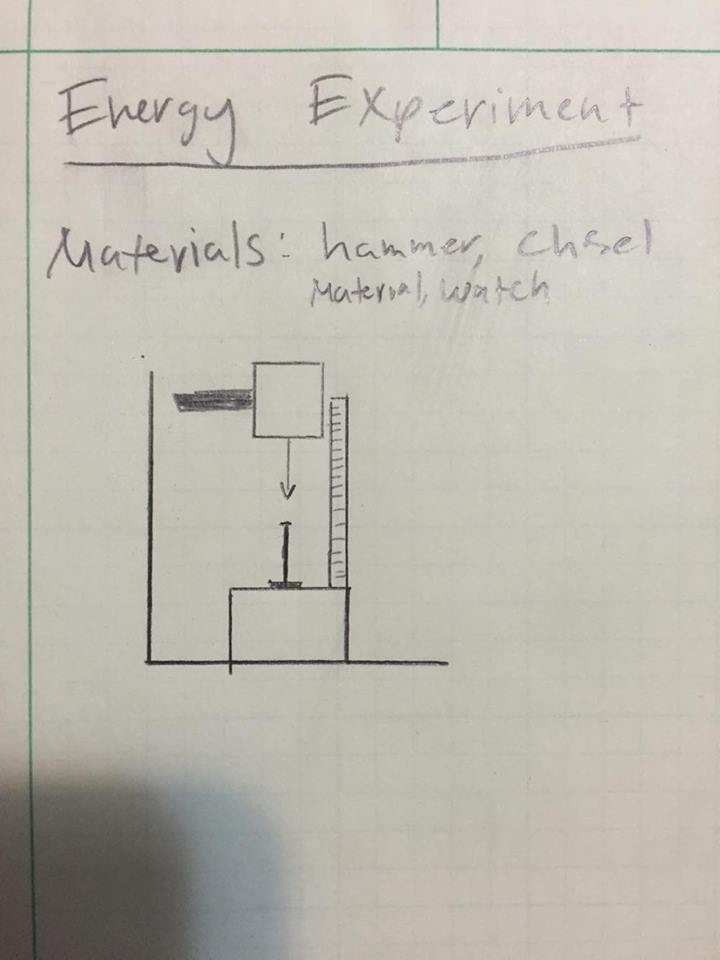 Energy Experiment
Materials: hammer, chisel
Material, watch